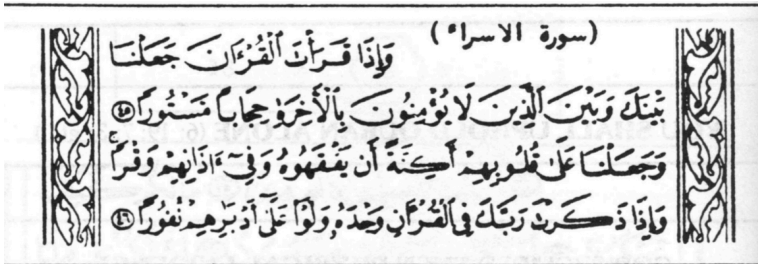 (سورة الاسراء)
وَإِذَا قَرَأْتَ ٱلْقُرْءَانَ جَعَلْنَا
بَيْنَكَ وَبَيْنَ ٱلَّذِينَ لَا يُؤْمِنُونَ بِٱلْأَخِرَةِ حِجَابًا مَّسْتُورًا ٤٥
وَجَعَلْنَا عَلَىٰ قُلُوبِهِمْ أَكِنَّةً أَن يَفْقَهُوهُ وَفِىٓ ءَاذَانِهِمْ وَقْرًا
وَإِذَا ذَكَرْتَ رَبَّكَ فِى ٱلْقُرْءَانِ وَحْدَهُۥ وَلَّوْا۟ عَلَىٰٓ أَدْبَٰرِهِمْ نُفُورًا ٤٦